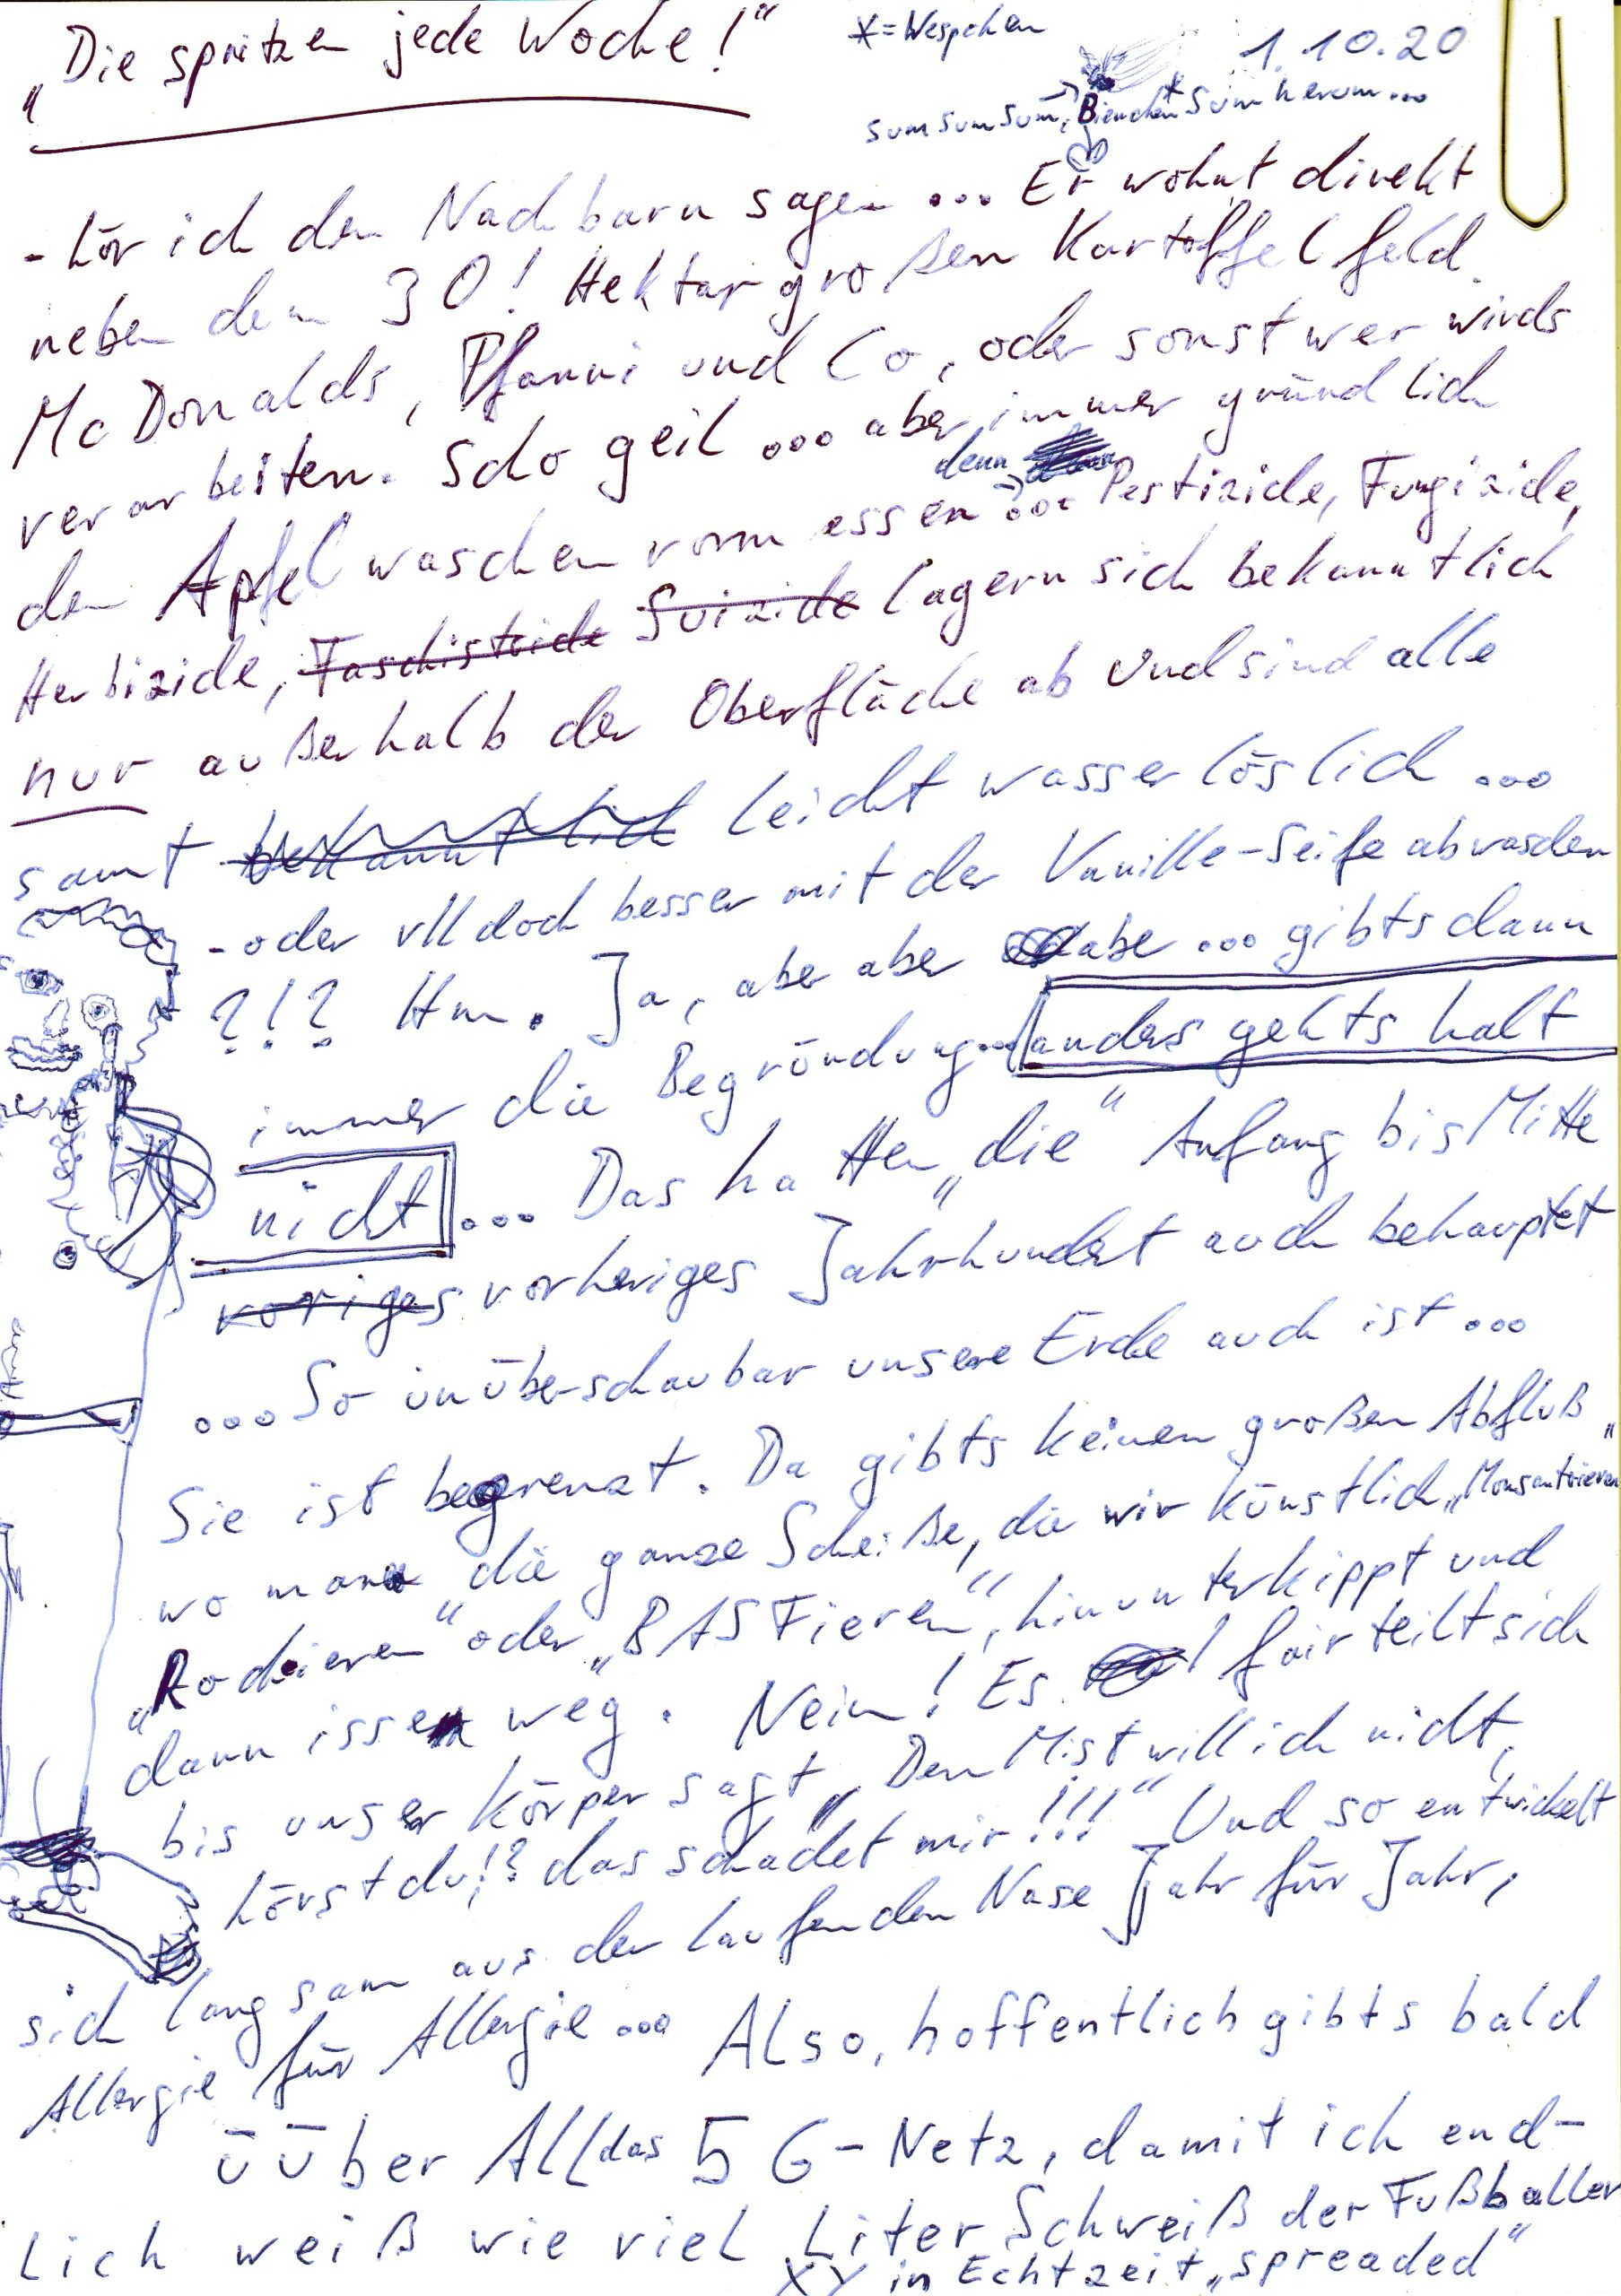 „Die spritzen jede Woche!“
*=Wespchen
1.10.20
sum sum sum, Bienchen* sum herum...
- hör ich den Nachbarn sagen ... Er wohnt direkt
neben dem 30! Hektar großen Kartoffelfeld.
McDonalds, Pfanni und Co, oder sonst wer wirds
verarbeiten. Scho geil ... aber immer gründlich
den Apfel waschen vorm essen ... denn Pestizide, Fungizide,
Herbizide, Faschistoide Suizide lagern sich bekanntlich
nur außerhalb der Oberfläche ab und sind alle
samt bekanntlich leicht wasserlöslich ...
- oder vll doch besser mit der Vanille-Seife abwaschen
?!? Hm. Ja, aber aber abe ... gibts dann
immer die Begründung... anders gehts halt
nicht ... Das hatten „die“ Anfang bis Mitte
voriges vorheriges Jahrhundert auch behauptet
... So unüberschaubar unsere Erde auch ist ...
Sie ist begrenzt. Da gibts keinen großen Abfluß
wo man die ganze Scheiße, die wir künstlich „Monsantoieren“
„Rochieren“ oder „BASFieren“, hinunterkippt und
dann isse weg. Nein! Es fairteilt sich
bis unser Körper sagt „Den Mist will ich nicht,
hörst du!? das schadet mir!!!“ Und so entwickelt
sich langsam aus der laufenden Nase Jahr für Jahr,
Allergie für Allergie ... Also, hoffentlich gibts bald
üüber All das 5G-Netz, damit ich end-
lich weiß wie viel Liter Schweiß der Fußballer
XY in Echtzeit „spreaded“